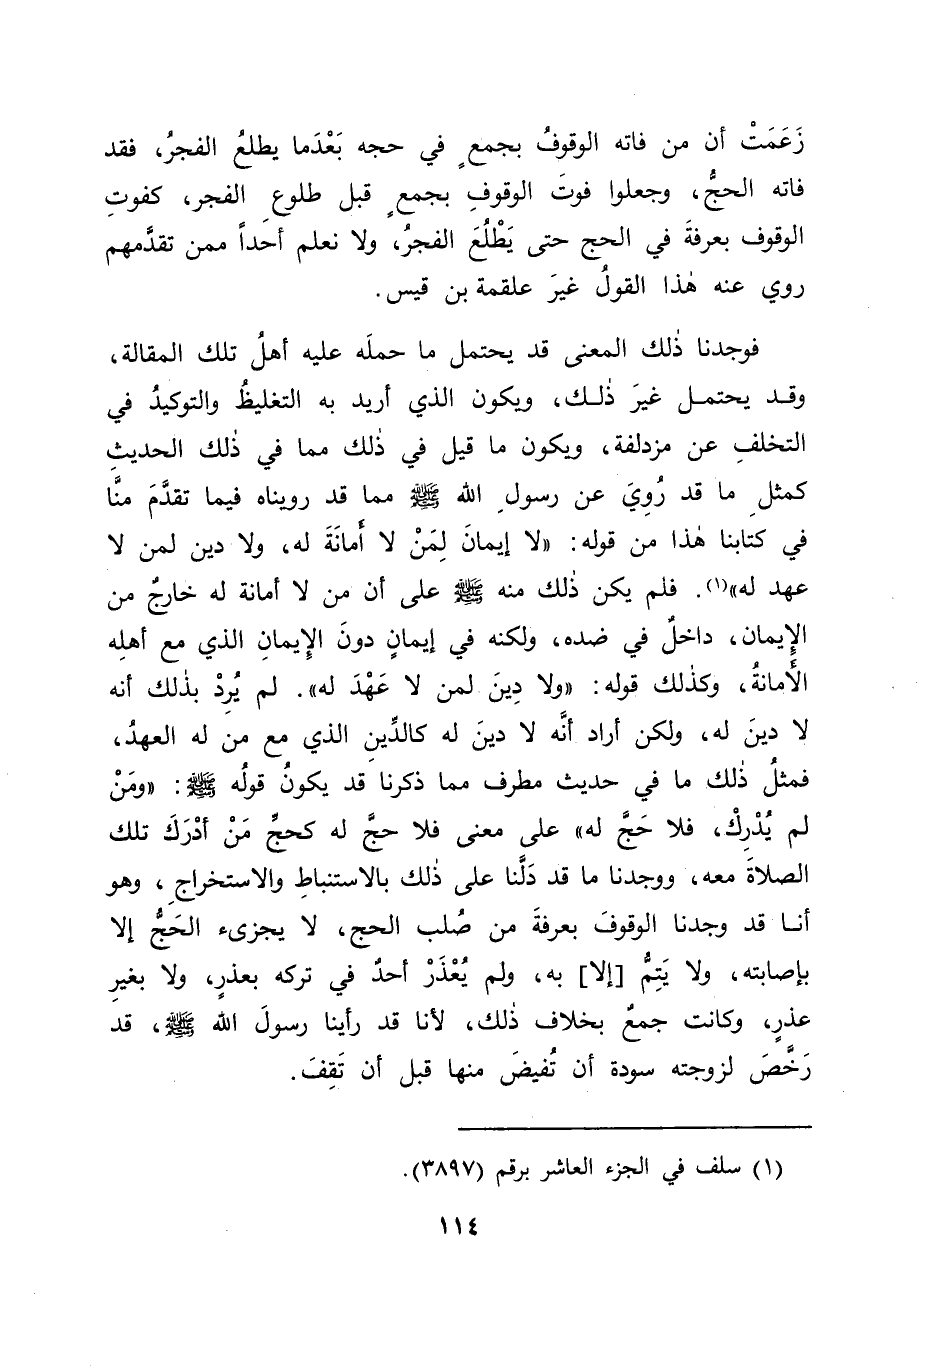 زَعَمَتْ أن من فاته الوقوفُ بجمعٍ في حجه بَعْدَما يطلعُ الفجرُ، فقد
فاته الحجُّ، وجعلوا فوتَ الوقوفِ بجمعٍ قبل طلوعِ الفجر، كفوتِ
الوقوف بعرفةَ في الحج حتى يَطْلُعَ الفجرُ، ولا نعلم أحداً ممن تقدَّمهم
روي عنه هٰذا القولُ غيرَ علقمة بن قيس.
فوجدنا ذٰلك المعنى قد يحتمل ما حملَه عليه أهلُ تلك المقالة،
وقد يحتمل غيرَ ذٰلك، ويكون الذي أريد به التغليظُ والتوكيدُ في
التخلفِ عن مزدلفة، ويكون ما قيل في ذٰلك مما في ذٰلك الحديثِ
كمثلِ ما قد رُوِيَ عن رسولِ الله ﷺ مما قد رويناه فيما تقدَّمَ منَّا
في كتابنا هٰذا من قوله: «لا إيمانَ لِمَنْ لا أَمانَةَ له، ولا دين لمن لا
عهد له»(١). فلم يكن ذٰلك منه ﷺ على أن من لا أمانة له خارجٌ من
الإِيمان، داخلٌ في ضده، ولكنه في إيمانٍ دونَ الإِيمانِ الذي مع أهلِه
الأَمانةُ، وكذٰلك قوله: «ولا دِينَ لمن لا عَهْدَ له». لم يُرِدْ بذٰلك أنه
لا دينَ له، ولكن أراد أنَّه لا دينَ له كالدِّينِ الذي مع من له العهدُ،
فمثلُ ذٰلك ما في حديث مطرف مما ذكرنا قد يكونُ قولُه ﷺ: «ومَنْ
لم يُدْرِكْ، فلا حَجَّ له» على معنى فلا حجَّ له كحجِّ مَنْ أدْرَكَ تلك
الصلاةَ معه، ووجدنا ما قد دَلَّنا على ذٰلك بالاستنباطِ والاستخراجِ، وهو
أنا قد وجدنا الوقوفَ بعرفةَ من صُلب الحج، لا يجزىء الحَجُّ إلا
بإصابته، ولا يَتِمُّ [إلا] به، ولم يُعْذَرْ أحدٌ في تركه بعذرٍ، ولا بغيرِ
عذرٍ، وكانت جمعٌ بخلاف ذٰلك، لأنا قد رأينا رسولَ الله ﷺ، قد
رَخَّصَ لزوجته سودة أن تُفيضَ منها قبل أن تَقِفَ.
(١) سلف في الجزء العاشر برقم (٣٨٩٧).
١١٤